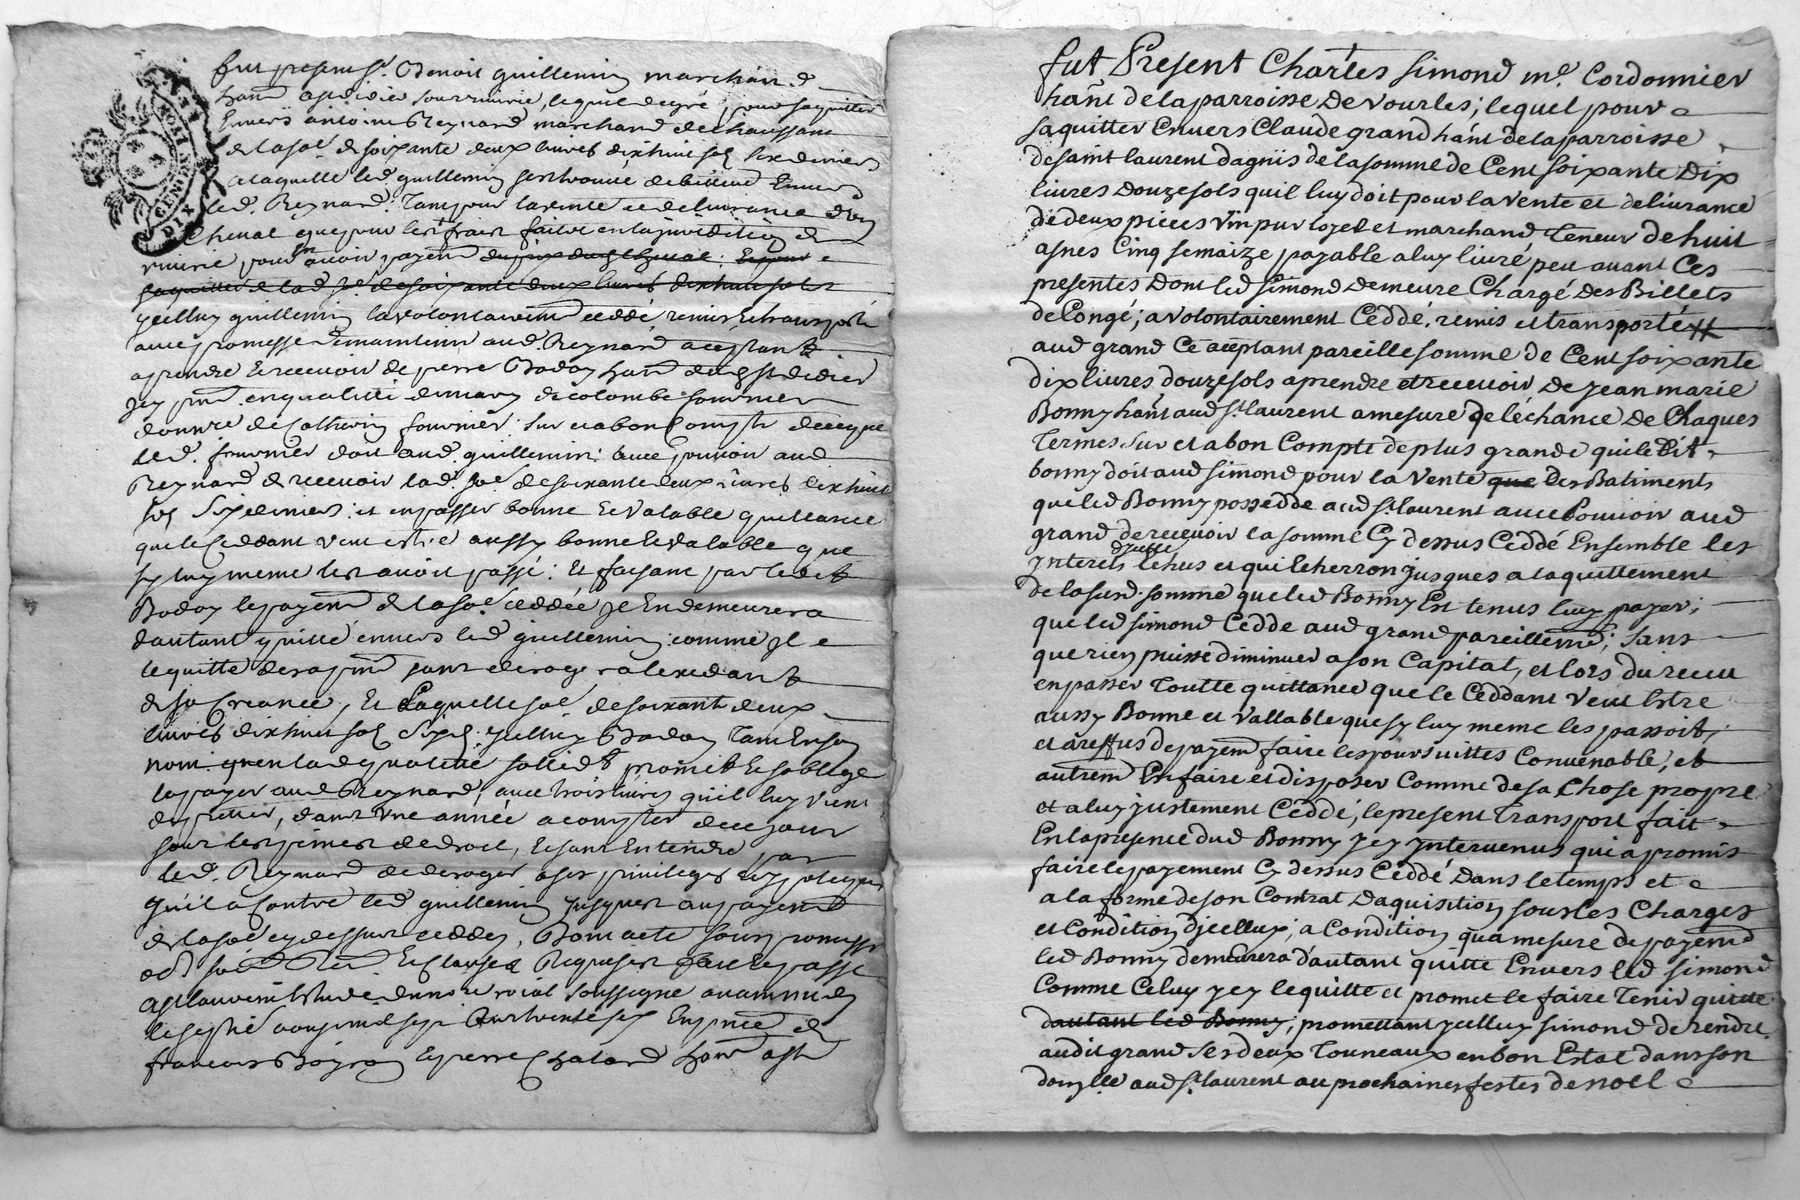 fut present Sr. Benoit guillemin marchand
hant a st didier sous riviere, lequel de gré pour saquitter
Envers antoine Reynard marchand de chaussant
de la soe. de soixante deux livres dixhuit sols six deniers
a laquelle led. guillemin sest trouvé debiteur Envers
led. Reynard. Tant pour la vente et delivrance d'un
Cheval que pour les frais faits en la juridiction de
riverie pour en avoir payem. du prix dud cheval. Et pour
saquitter de lad. soe. de soixante deux livres dixhuit sols
yceluy guillemin a volontairem. ceddé, remis et transporté
avec promesse de maintenir aud. Reynard acceptant
a prendre et recevoir de pierre Baday hant. dud st didier
jcy pnt. en qualité de mary de colombe fournier
donnre de Catherin fournier: sur et a bon Compte de ce que
led. fournier doit aud. guillemin: avec pouvoir aud.
Reynard de recevoir lad. soe. de soixante deux livres dixhuit
sols six deniers: et en passer bonne et valable quittance
que le Ceddant veut estre aussy bonne et valable que
sy luy meme les avoit passé: Et faisant par ledit
Baday le payemt. de la soe. ceddée jl En demeurera
dautant quitte envers led. guillemin: comme jl
le quitte des a pnt. sans deroger a lexcedant
de sa Creance, Et Laquelle soe. de soixante deux
livres dixhuit sols six d. yceluy Baday Tant En son
nom qu'en lad. qualité sollid. promet et soblige
la payer aud. Reynard, avec trois livres qu'il luy vient
de pretter, dans une année a compter de ce jour
sous les peines de droit, Et sans Entendre par
led. Reynard de deroger a ses privileges et hypoteques
qu'il a Contre led. guillemin jusques au payement
de la soe. cy dessus ceddée, Dont acte sous promesses
obls. soum. Ren. Et Clauses Requises fait et passé
a st laurent Etude du nore. royal soussigné avant midy
le septié. jour de sept. Trente six En pnce. de
francois Et pierre Chatard hant. a st
fut Present Charles simond me. Cordonnier
hant de la parroisse de vourles; lequel pour
saquitter Envers Claude grand hant de la parroisse
de saint laurent dagnis de la somme de Cent soixante Dix
livres Douze sols quil luy doit pour la vente et delivrance
de deux pieces vin pur loyal et marchand Teneur de huit
asnes Cinq semaize payable a luy livré peu avant Ces
presentes Dont led simond Demeure Chargé Des Billets
de Congé; a volontairement Ceddé, remis et transporté
aud grand Ce acceptant pareille somme de Cent soixante
dix livres douze sols a prendre et recevoir De jean marie
Bonny hant aud st. laurent a mesure de léchance De Chaques
Termes sur et a bon Compte de plus grande que le Dit
bonny doit aud simond pour la vente que Des Batiments
que led Bonny possedde aud st. laurent avec Pouvoir aud
grand de recevoir la somme Cy dessus Ceddé Ensemble les
Interets d'jcelle Echus et qui Echerront jusques a laquittement
de la susd. somme que led Bonny Est tenus luy payer;
que led simond Cedde aud grand pareillemt.; sans
que rien puisse diminuer a son Capital, et lors du receu
en passer Toutte quittance que le Ceddant veut Estre
aussy Bonne et vallable que sy luy meme les passoit;
et a reffus de payemt. faire les poursuittes Convenable, et
autremt. En faire et disposer Comme de sa Chose propre
et a luy justement Ceddé, le present Transport fait
En la presence dud Bonny jcy jntervenus qui a promis
faire le payement Cy dessus Ceddé Dans le temps et
a la forme de son Contrat Daquisition sous les Charges
et Condition d'jcelluy; a Condition qua mesure de payemt.
led Bonny demeurera dautant quitte Envers led simond
Comme Celuy jcy le quitte et promet le faire Tenir quitte
dautant led Bonny; promettant ycelluy simond de rendre
audit grand ses deux Tonneaux en bon Estat dans son
domlle aud st. laurent au prochaines festes de noel
MOYEN PAPIER
GENON DIX